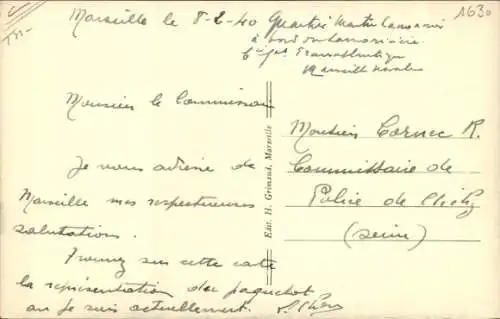 Marseille le 8-2-40
1630
à bord du
Cie Gle Transatlantique
Marseille
Monsieur le Commissaire
Je vous adresse de
Marseille mes respectueuses
salutations.
Trouvez sur cette carte
la représentation du paquebot
ou je suis actuellement.
Edit. H. Grimaud, Marseille
Monsieur Cornec R.
Commissaire de
Police de Clichy
(Seine)